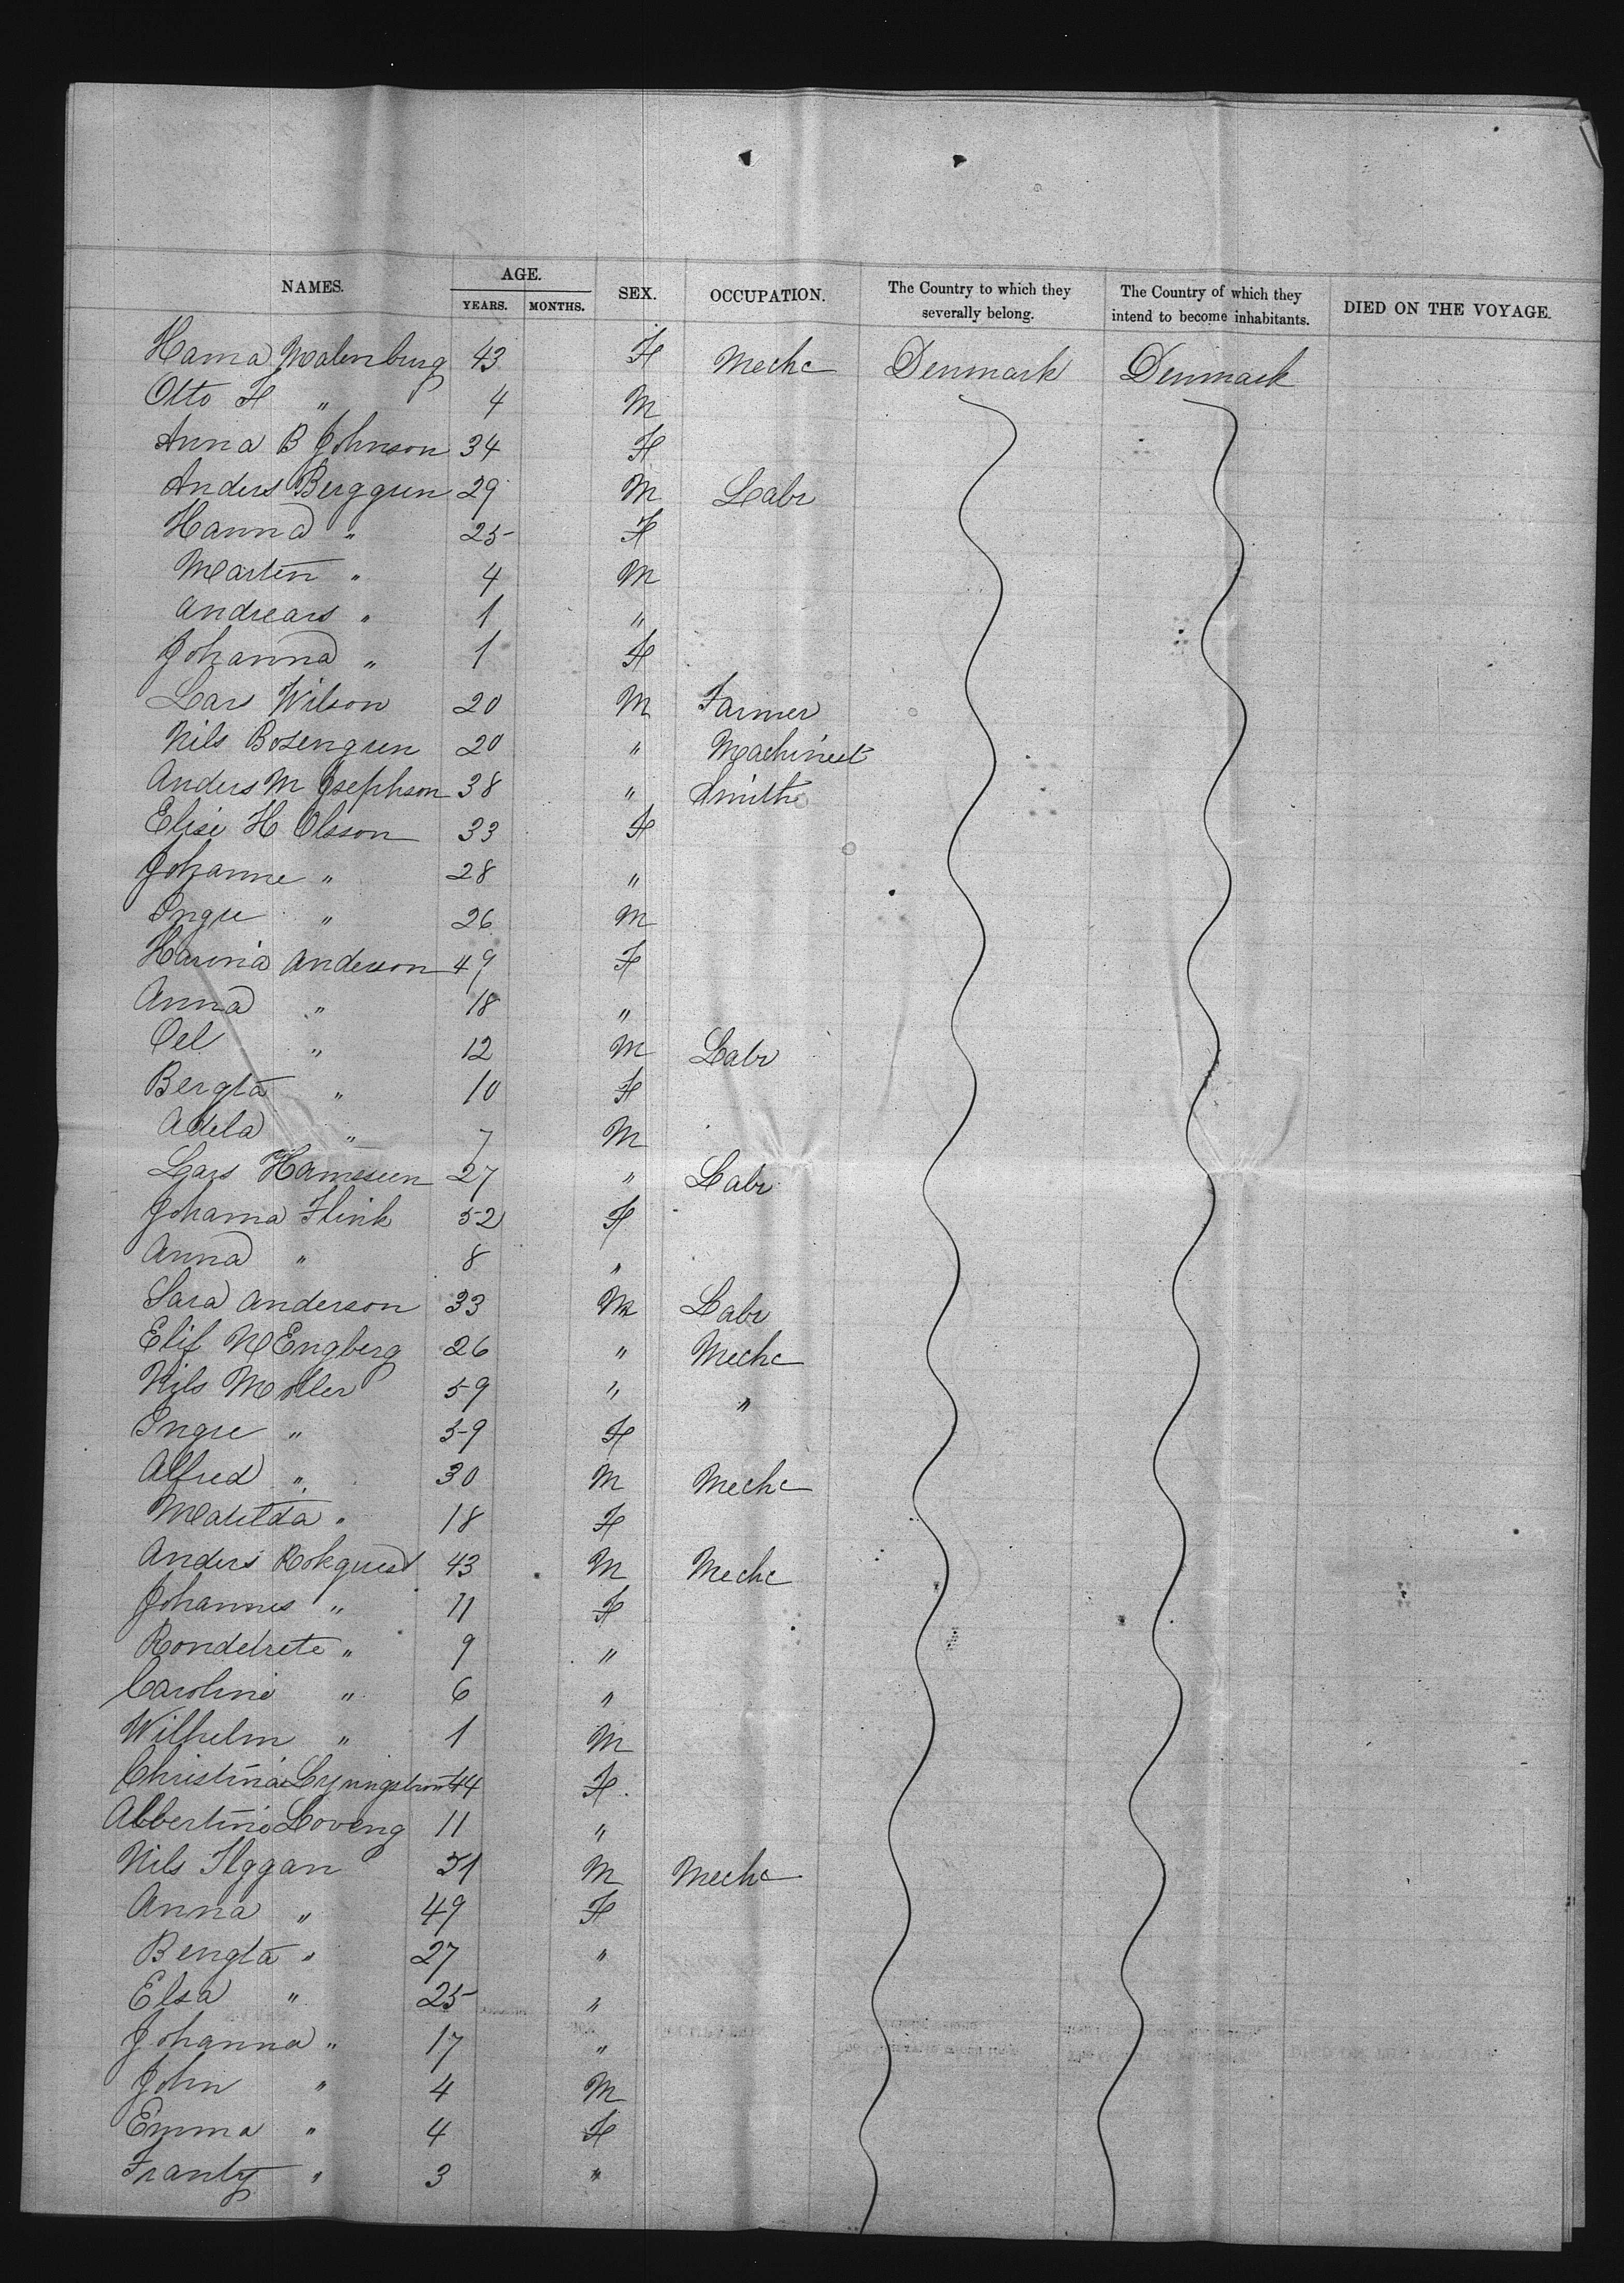 NAMES. AGE. SEX. OCCUPATION. The Country to which they severally belong. The Country of which they intend to become inhabitants. DIED ON THE VOYAGE.
YEARS. MONTHS.
Hama Malenburg 43 F Mechc Denmark Denmark
Otto F " 4 M
Anna B Johnson 34 F
Anders Berggren 29 M Labr
Hanna " 25 F
Marten " 4 M
Andrears " 1 "
Johanna " 1 F
Lars Wilson 20 M Farmer
Nils Bosengren 20 " Machinest
Anders M Josephson 38 " Smith
Elise H Olsson 33 F
Johanne " 28 "
Ingre " 26 M
Hanna Anderson 49 F
Anna " 18 "
Oel " 12 M Labr
Bergta " 10 F
Adela " 7 M
Lars 27 " Labr
Johanna Flink 52 F
Anna " 8 "
Sara Anderson 33 M Labr
Elif M Engberg 26 " Mechc
Nils Moller 59 " "
Ingre " 59 F
Alfred " 30 M Mechc
Matilda " 18 F
Anders Rokquest 43 M Mechc
Johannes " 11 F
Rondelrete " 9 "
Caroline " 6 "
Wilhelm " 1 M
Christina Lyungstrom 44 F
Albertine Loveng 11 "
Nils Ilggan 51 M Mechc
Anna " 49 F
Bengta " 27 "
Elsa " 25 "
Johanna " 17 "
John " 4 M
Emma " 4 F
Franty " 3 "